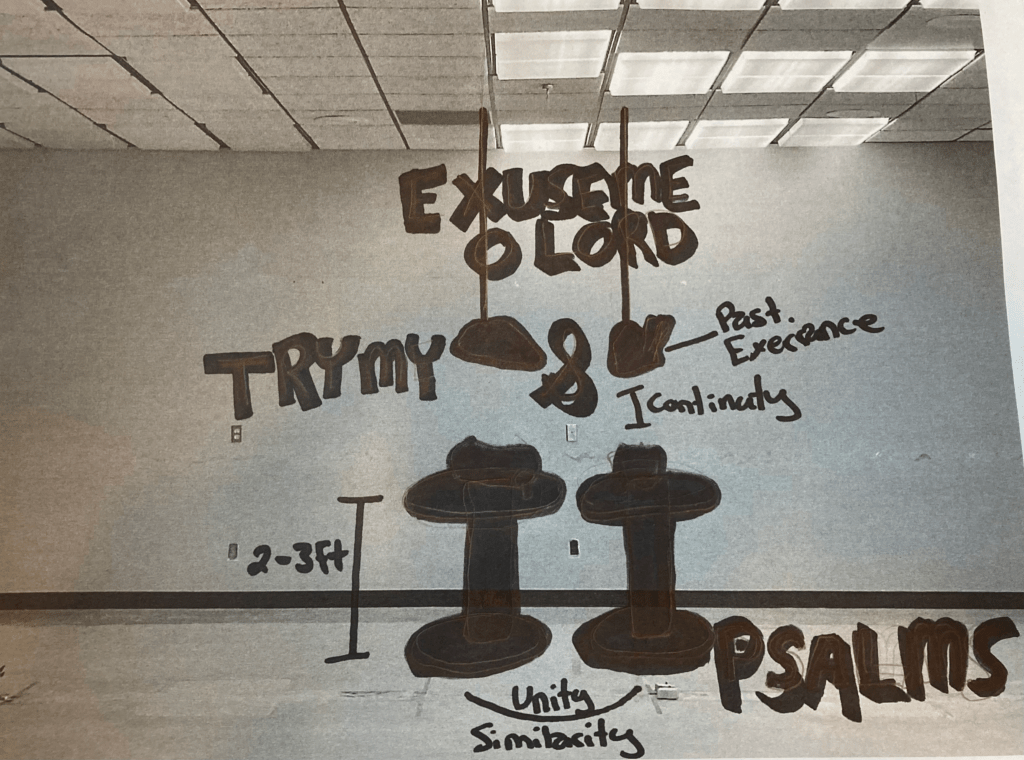 EXUSEME
O LORD
TRYMY &
Past.
Exerance
I continuty
2-3Ft
PSALMS
Unity
Similarity